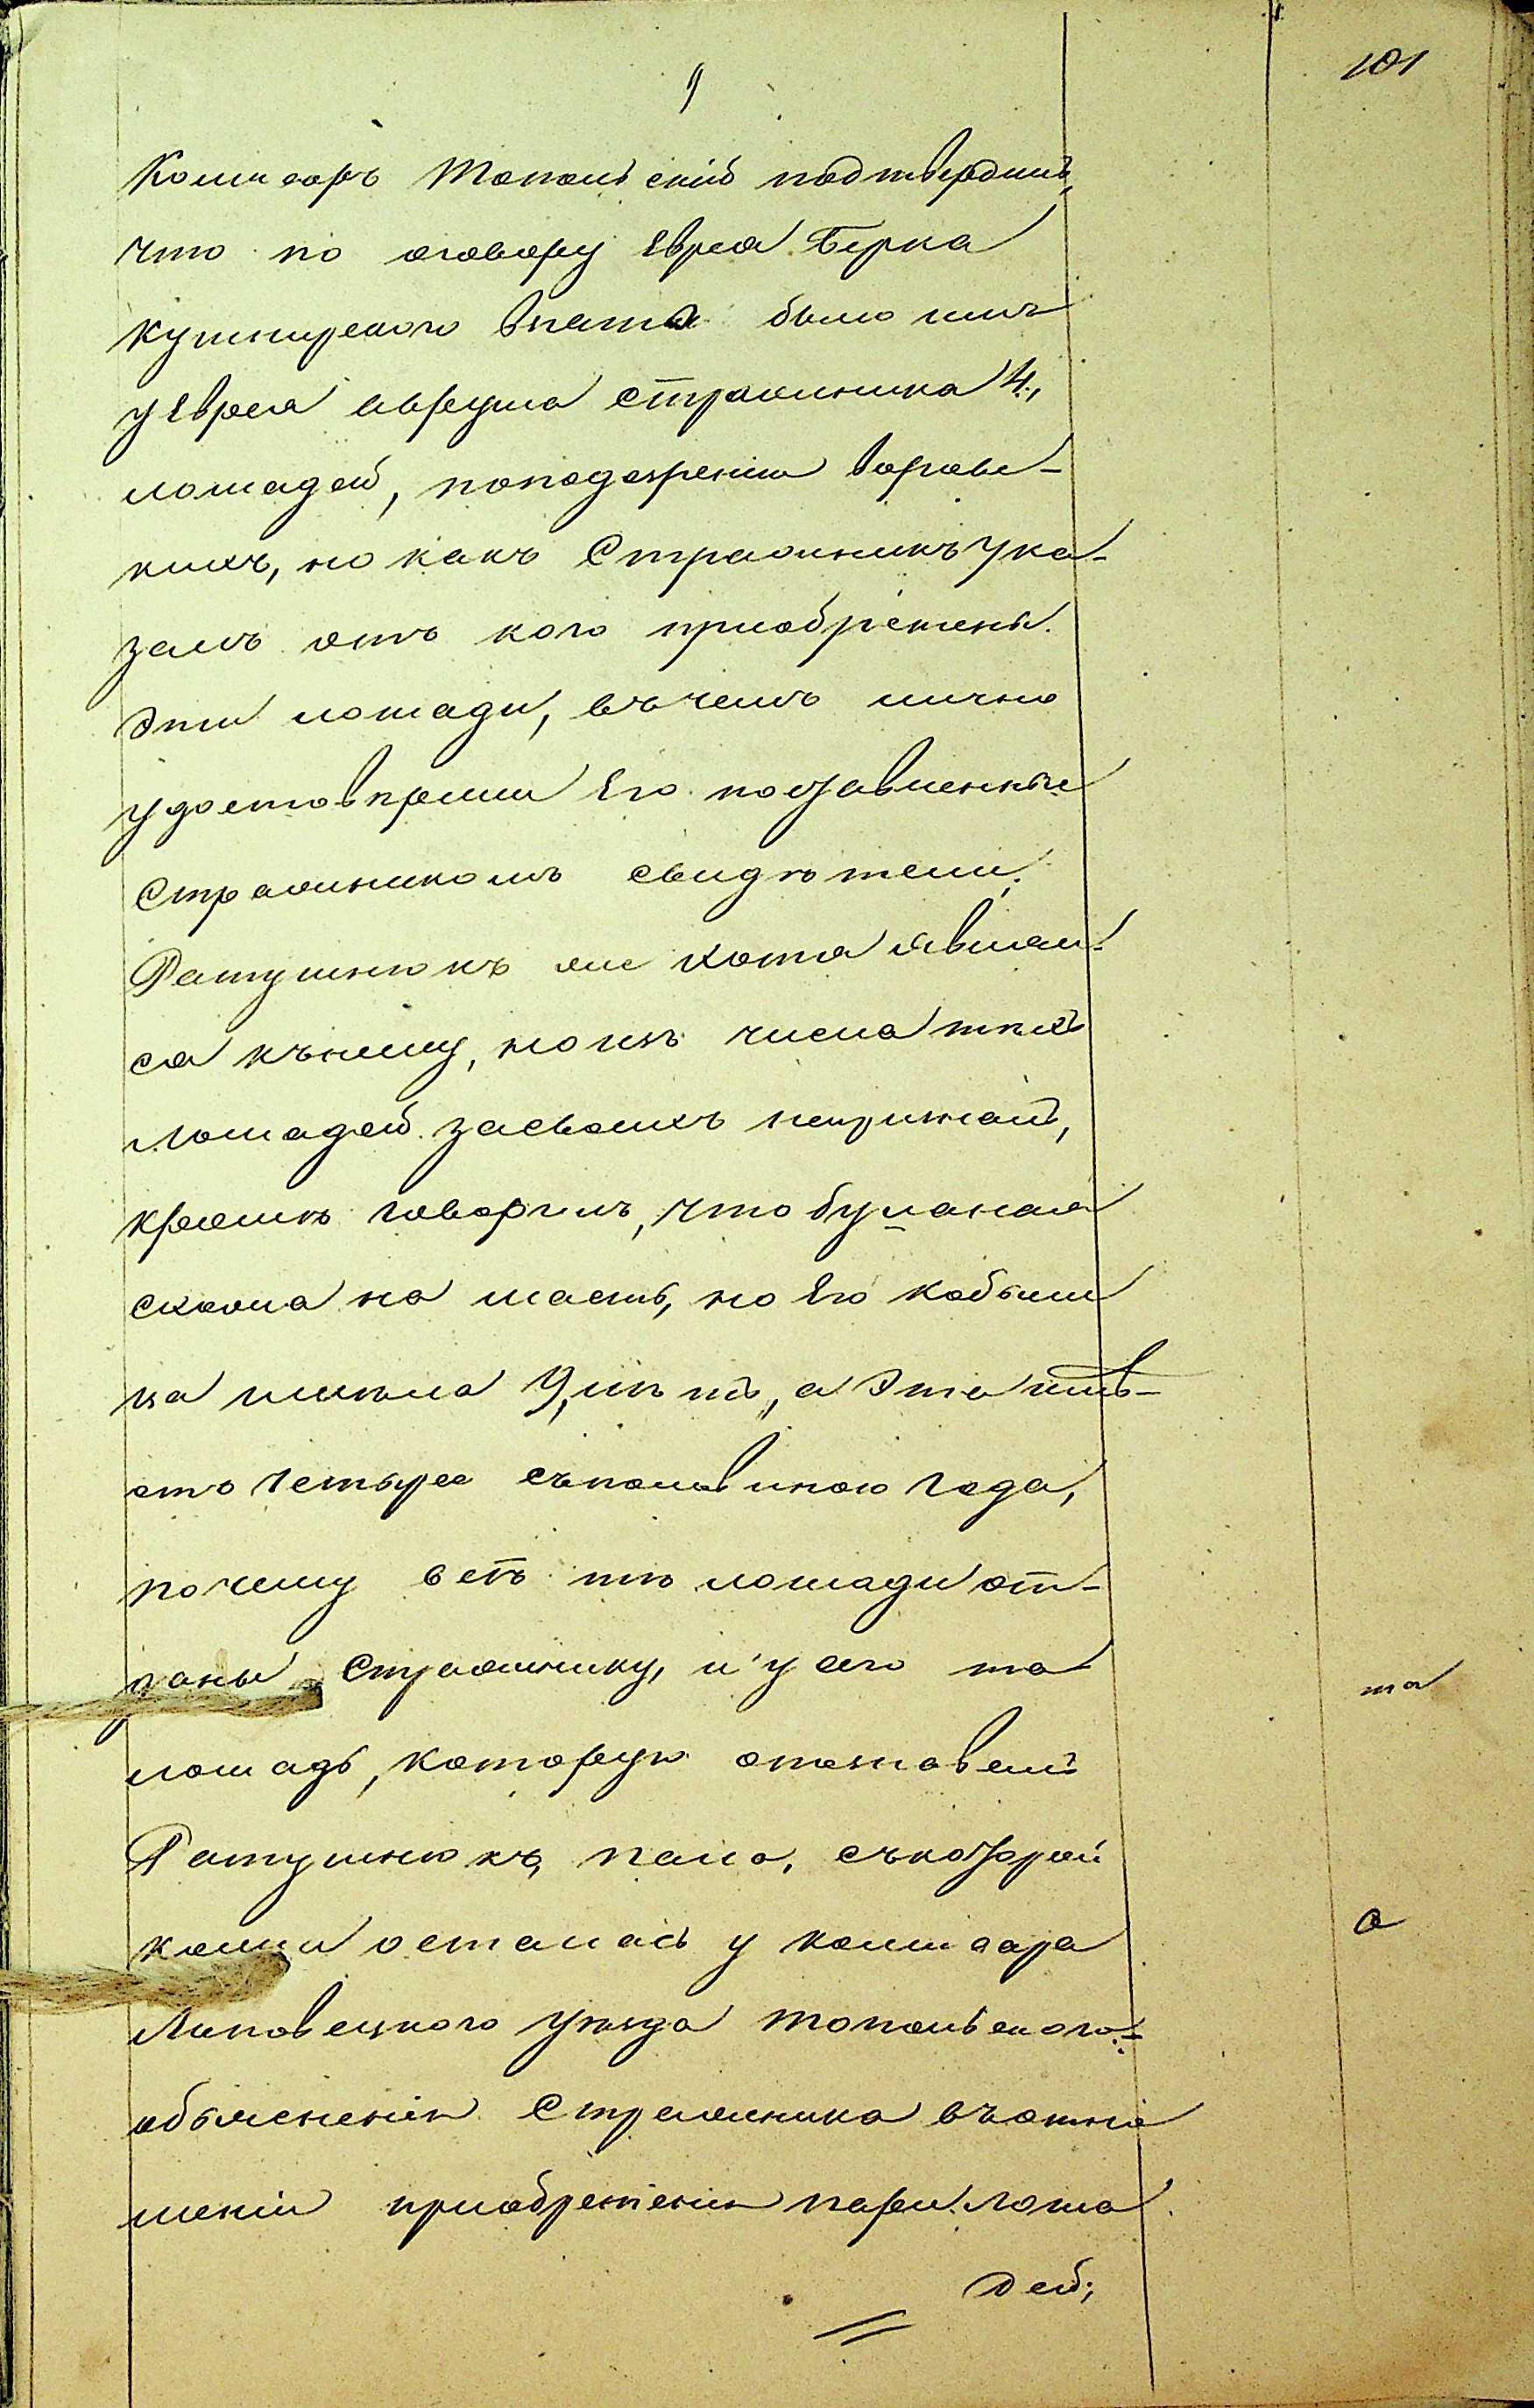 9
101
Комисаръ Топольскій подтвердилъ,
что по оговору Еврея Берка
Кушнирскаго взято было имъ
у Еврея Абрума Стражника 4,
лошадей, поподозренію воровс-
кихъ, но какъ Стражникъ ука-
залъ отъ кого приобрѣтены
эти лошади, въ чемъ лично
удостовѣрили Его поставленные
Стражникомъ свидѣтели,
Ратушнюкъ же хотя являл-
ся къ нему, но изъ числа тѣхъ
лошадей за своихъ непризналъ,
кромѣ говорилъ, что буланая
схожа на масть, но Его кобыли
ца имѣла 9, лѣтъ, а эта имѣ-
етъ четыре съполовиною года,
почему всѣ тѣ лошади от-
даны Стражнику, и у его та
та
лошадь, которую отыскавалъ
Ратушнюкъ, пала, съкоторой
кожа осталась у комисара
а
Липовецкаго уѣзда Топольскаго.-
объясненія Стражника въ отно
шеніи приобретенія пары лоша
дей;